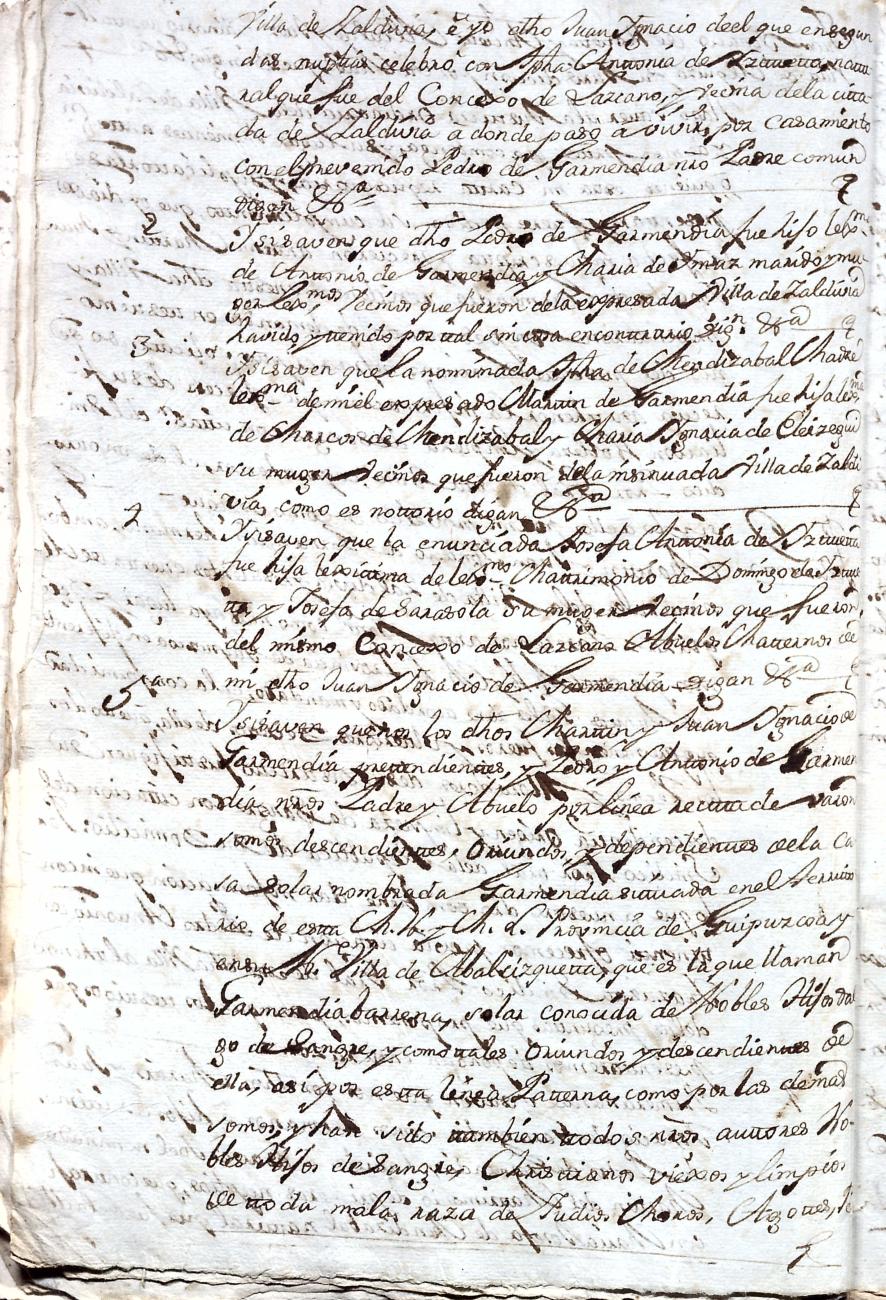 Villa de Zaldivia, è yo dho Juan Ygnacio deel que en segun
das nuptias celebro con Jpha Anttonia de Yztuetta, nattu
ral que fue del Concexo de Lazcano, y vecina de la citta
da de Zaldivia a donde paso a vivir, por casamiento
con el prevenido Pedro de Garmendia nro Padre comun
digan &a
2 Y si saven que dho Pedro de Garmendia fue hijo lexmo
de Anttonio de Garmendia, y Maria de Ymaz marido y mu
ger lexmos, vecinos que fueron de la expresada Villa de Zaldivia
havido, y tenido por tal sin cosa en conttrario dign &a
3 Y si saven que la nominada Jpha de Mendizabal Madre
lexma de mi el expresado Martin de Garmendia fue hija lexma
de Marcos de Mendizabal y Maria Ygnacia de Eleizegui
su muger vecinos que fueron de la insinuada Villa de Zaldi
via, como es nottorio digan &a
4 Y si saven que la enunciada Josefa Anttonia de Yztuetta
fue hija lexitima de lexmo Mattrimonio de Domingo de Yztue
tta, y Josefa de Sarasola su muger vecinos que fueron
del mismo Concexo de Lazcano Abuelos Matternos de
mi dho Juan Ygnacio de Garmendia digan &a
5a Y si saven que nos los dhos Martin y Juan Ygnacio de
Garmendia prettendientes, y Pedro y Antonio de Garmen
dia nros Padre y Abuelo por linea rectta de varon
somos descendientes, Oriundos, y dependientes de la Ca
sa solar nombrada Garmendia situada en el territo
rio de estta M. N. y M. L. Provincia de Guipuzcoa y
en su N. Villa de Abalcizquetta, que es la que llaman
Garmendiabarrena, solar conocida de Nobles Hijosdal
go de Sangre, y como tales Oriundos y descendientes de
ella, asi por estta linea Patterna, como por las demas
somos, y han sido tambien todos nros auttores No-
bles Hijos de Sangre, Christianos viexos y limpios
de ttoda mala raza de Judios Moros, Agottes,